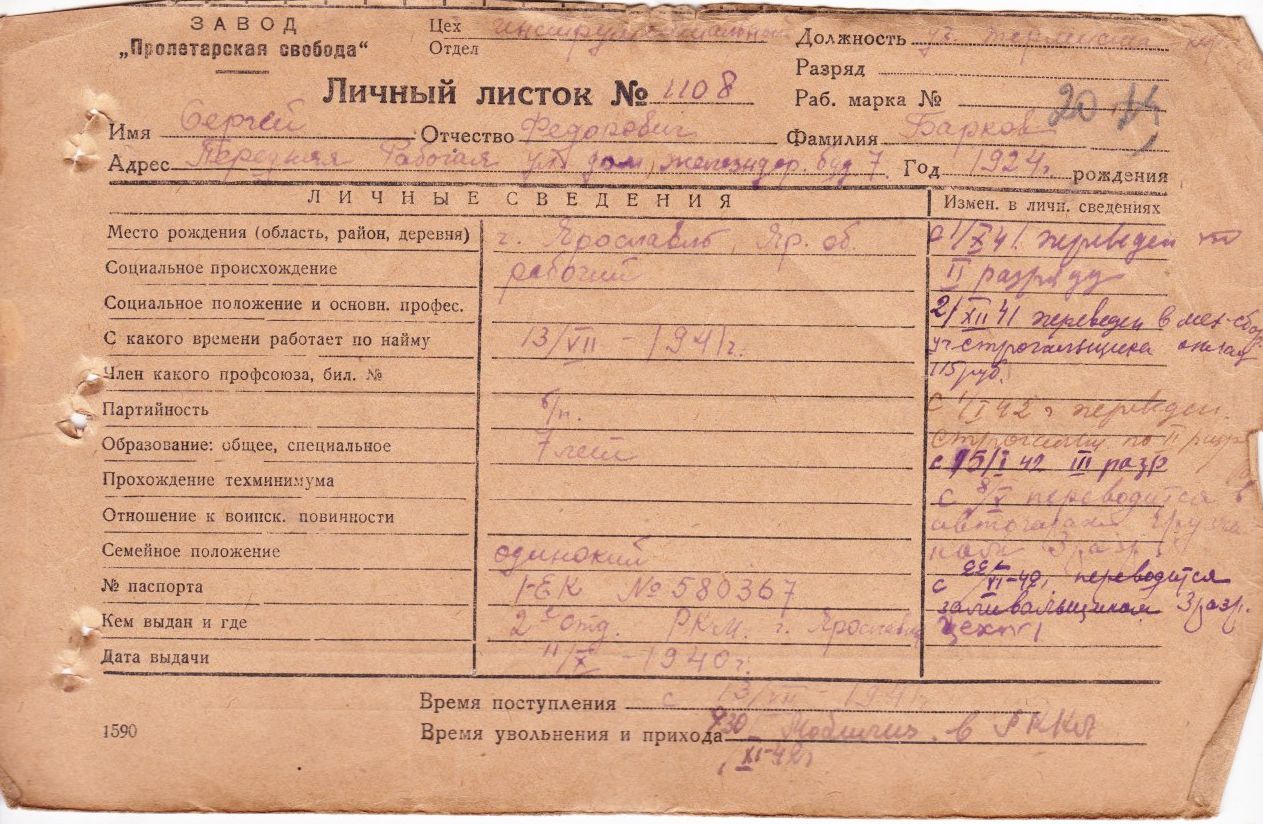 ЗАВОД
„Пролетарская свобода“
Цех инструментальный
Отдел
Должность уч. термиста
Разряд
Раб. марка № 20 14
Личный листок № 1108
Имя Сергей Отчество Федорович Фамилия Барков
Адрес Передняя Рабочая ул. дом, железнодор. буд 7. Год 1924 г. рождения
ЛИЧНЫЕ СВЕДЕНИЯ
Измен. в личн. сведениях
Место рождения (область, район, деревня) г. Ярославль, Яр. об.
Социальное происхождение рабочий
Социальное положение и основн. професс.
С какого времени работает по найму 13/VII - 1941 г.
Член какого профсоюза, бил. №
Партийность б/п.
Образование: общее, специальное 7 лет
Прохождение техминимума
Отношение к воинск. повинности
Семейное положение одинокий
№ паспорта I-ЕК № 580367
Кем выдан и где 2е отд. РКМ. г. Ярославль
Дата выдачи 11/X - 1940 г.
с 1/X 41. переведен по
II разряду
2/XII 41 переведен в мех-сбор
уч строгальщика оклад
115 руб.
С 1/I 42 г переведен.
строгальщ по II разр
с 15/I 42 III разр
с 8/X переводится в
автогараж грузчи
ком 3 разр
с 22/XI-42, переводится
заливальщиком 3 разр.
цех № 1
Время поступления с 13/VII 1941 г.
1590
Время увольнения и прихода 30 Мобилиз. в РККА
XI-42 г